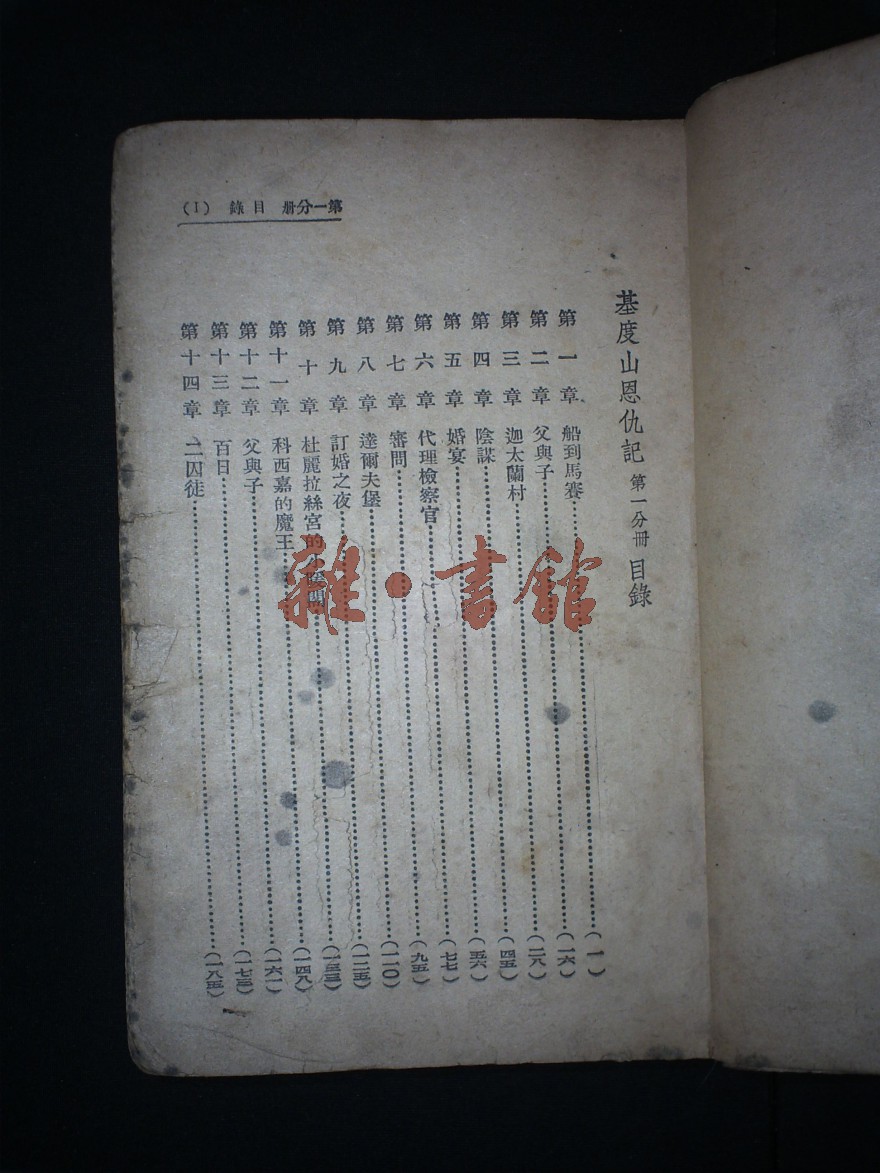 第一分册 目錄 (1)
基度山恩仇記 第一分冊 目錄
第一章 船到馬賽……(一)
第二章 父與子……(一六)
第三章 迦太蘭村……(二八)
第四章 陰謀……(四五)
第五章 婚宴……(五六)
第六章 代理檢察官……(七七)
第七章 審問……(九五)
第八章 達爾夫堡……(一一〇)
第九章 訂婚之夜……(一二五)
第十章 杜麗拉絲宮的小……(一三三)
第十一章 科西嘉的魔王……(一四八)
第十二章 父與子……(一六一)
第十三章 百日……(一七三)
第十四章 二囚徒……(一八五)
雜·書館